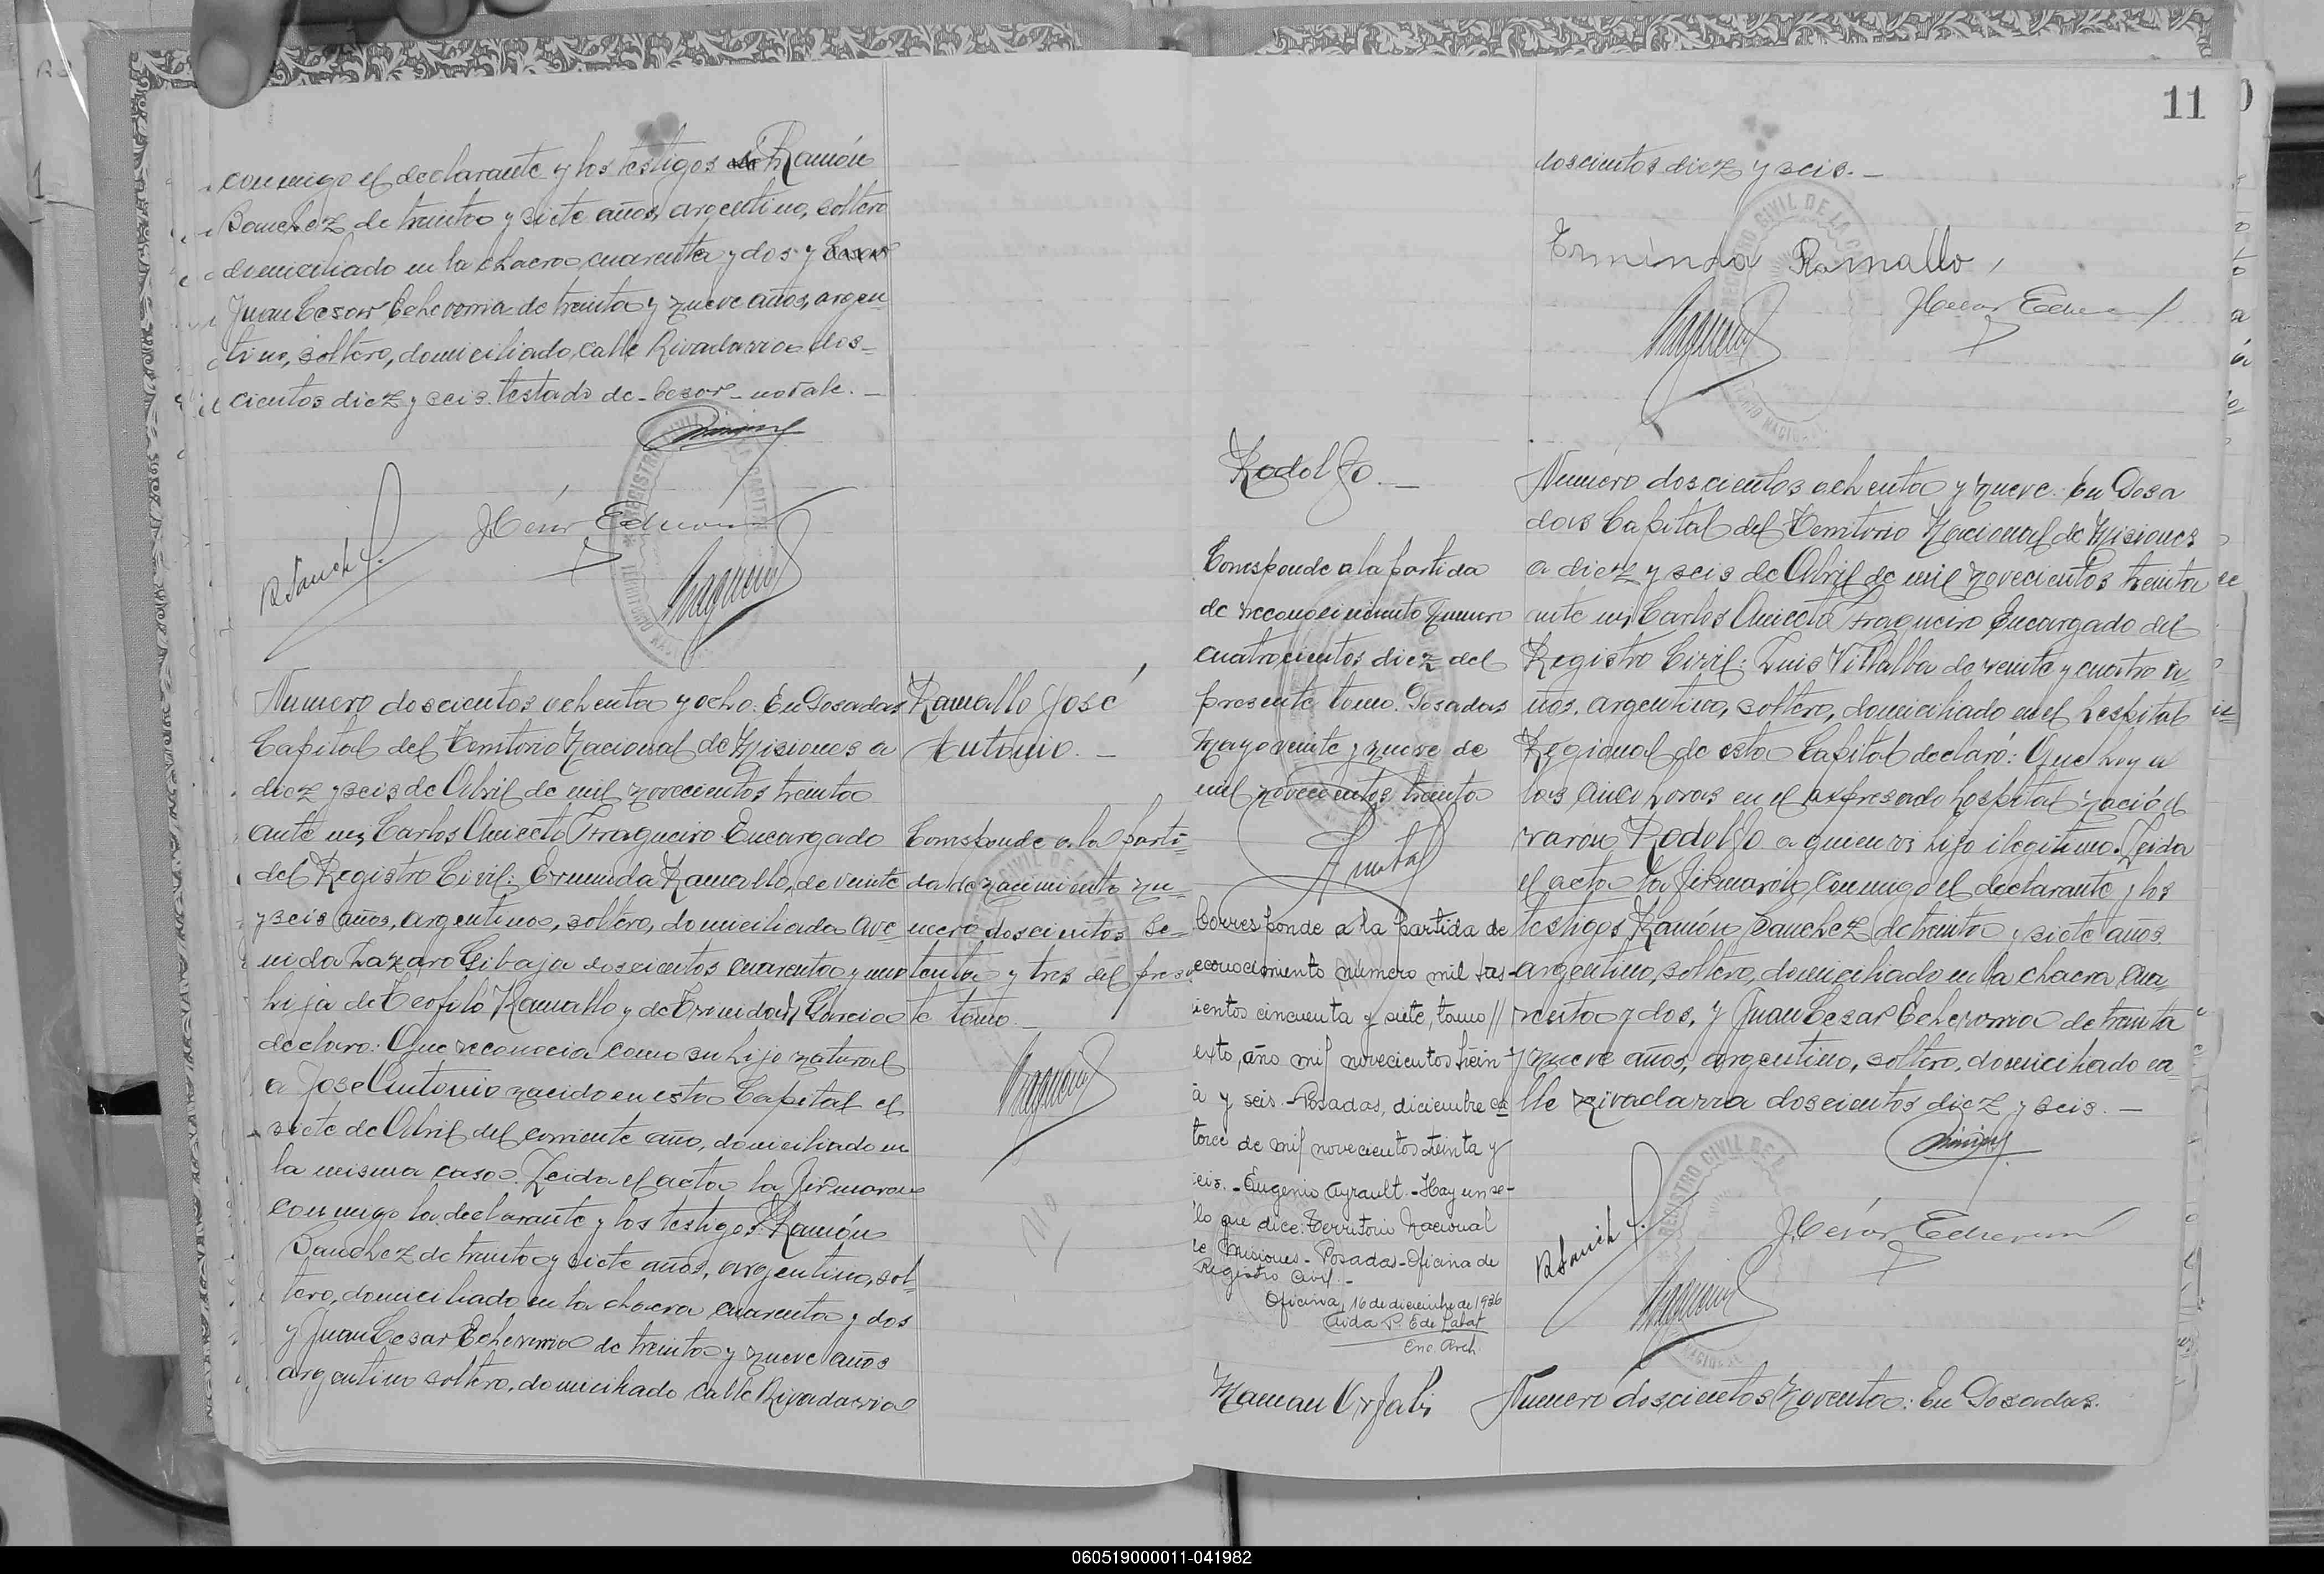 conmigo el declarante y los testigos de Ramón
Sanchez de treinta y siete años, argentino, soltero
domiciliado en la chacra cuarenta y dos y Cesar
Juan Cesar Echeverria de treinta y nueve años, argen
tino, soltero, domiciliado, calle Rivadavia dos-
cientos diez y seis. testado de - Cesar - no vale. -
R Sanchez
JCesar Echeverria
Numero doscientos ochenta y ocho. En Posadas
Capital del Territorio Nacional de Misiones a
diez y seis de Abril de mil novecientos treinta
ante mi, Carlos Aniceto Fragueiro Encargado
del Registro Civil: Erminda Ramallo, de veinte
y seis años, argentina, soltera, domiciliada Ave
nida Lazaro Gibaja doscientos cuarenta y uno
hija de Teofilo Ramallo y de Trinidad Garcia
declaro: Que reconocia como su hijo natural
a Jose Antonio nacido en esta Capital el
siete de Abril del corriente año, domiciliado en
la misma casa. Leida el acta la firmaron
conmigo la declarante y los testigos Ramón
Sanchez de treinta y siete años, argentino, sol-
tero, domiciliado en la chacra cuarenta y dos
y Juan Cesar Echeverria de treinta y nueve años
argentino soltero, domiciliado calle Rivadavia
Ramallo José
Antonio. -
Corresponde a la parti-
da de nacimiento nu-
mero doscientos se-
tenta y tres del presen
te tomo. -
11
doscientos diez y seis. -
Erminda Ramallo
JCesar Echeverria
Rodolfo. -
Corresponde a la partida
de reconocimiento numero
cuatrocientos diez del
presente tomo. Posadas
Mayo veinte y nueve de
mil novecientos treinta
Corresponde a la partida de
econocimiento número mil tres-
ientos cincuenta y siete, tomo //
exto, año mil novecientos trein
a y seis. - Posadas, diciembre ca
torce de mil novecientos treinta y
eis. - Eugenio Ayrault. - Hay un se-
llo que dice: Territorio Nacional
de Misiones - Posadas - Oficina de
Registro Civil. -
Oficina, 16 de diciembre de 1936
Aida P. E de Labat
Enc. Arch.
Numero doscientos ochenta y nueve. En Posa
das Capital del Territorio Nacional de Misiones
a diez y seis de Abril de mil novecientos treinta
ante mi, Carlos Aniceto Fragueiro Encargado del
Registro Civil: Luis Villalba de veinte y cuatro a-
ños, argentino, soltero, domiciliado en el Hospital
Regional de esta Capital declaró: Que hoy a
las cinco horas en el expresado hospital nació el
varon Rodolfo a quien vi hijo ilegitimo. Leida
el acta la firmarón, conmigo el declarante y los
testigos Ramón Sanchez de treinta y siete años
argentino, soltero, domiciliado en la chacra cua-
renta y dos, y Juan Cesar Echeverria de treinta
y nueve años, argentino, soltero, domiciliado ca-
lle rivadavia doscientos diez y seis. -
R Sanchez
JCesar Echeverria
Numero doscientos noventa: En Posadas.
060519000011-041982